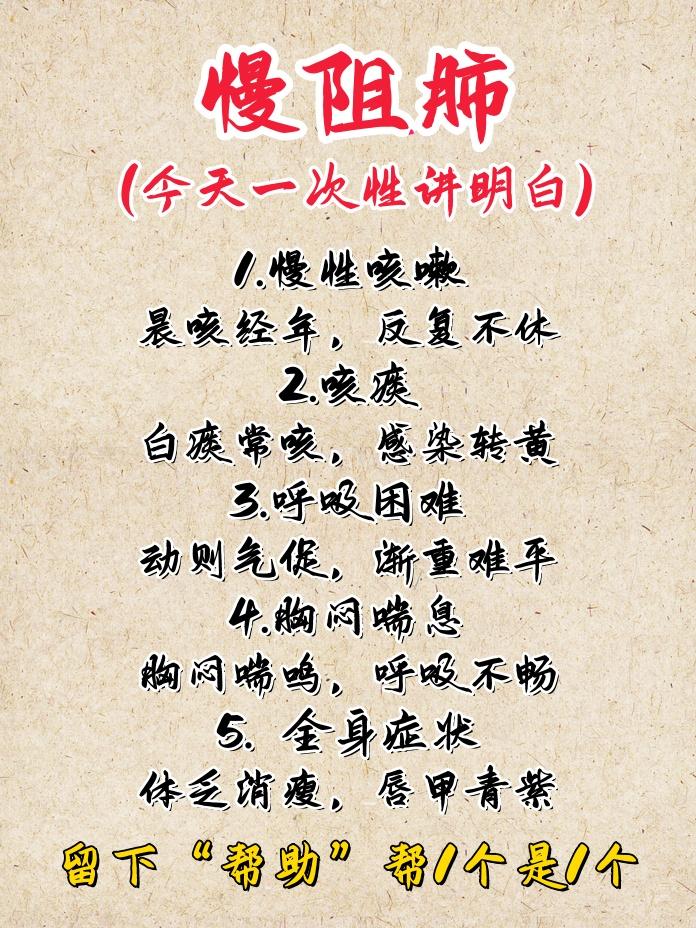 慢阻肺
(今天一次性讲明白)
1.慢性咳嗽
晨咳经年，反复不休
2.咳痰
白痰常咳，感染转黄
3.呼吸困难
动则气促，渐重难平
4.胸闷喘息
胸闷喘鸣，呼吸不畅
5. 全身症状
体乏消瘦，唇甲青紫
留下“帮助”帮1个是1个